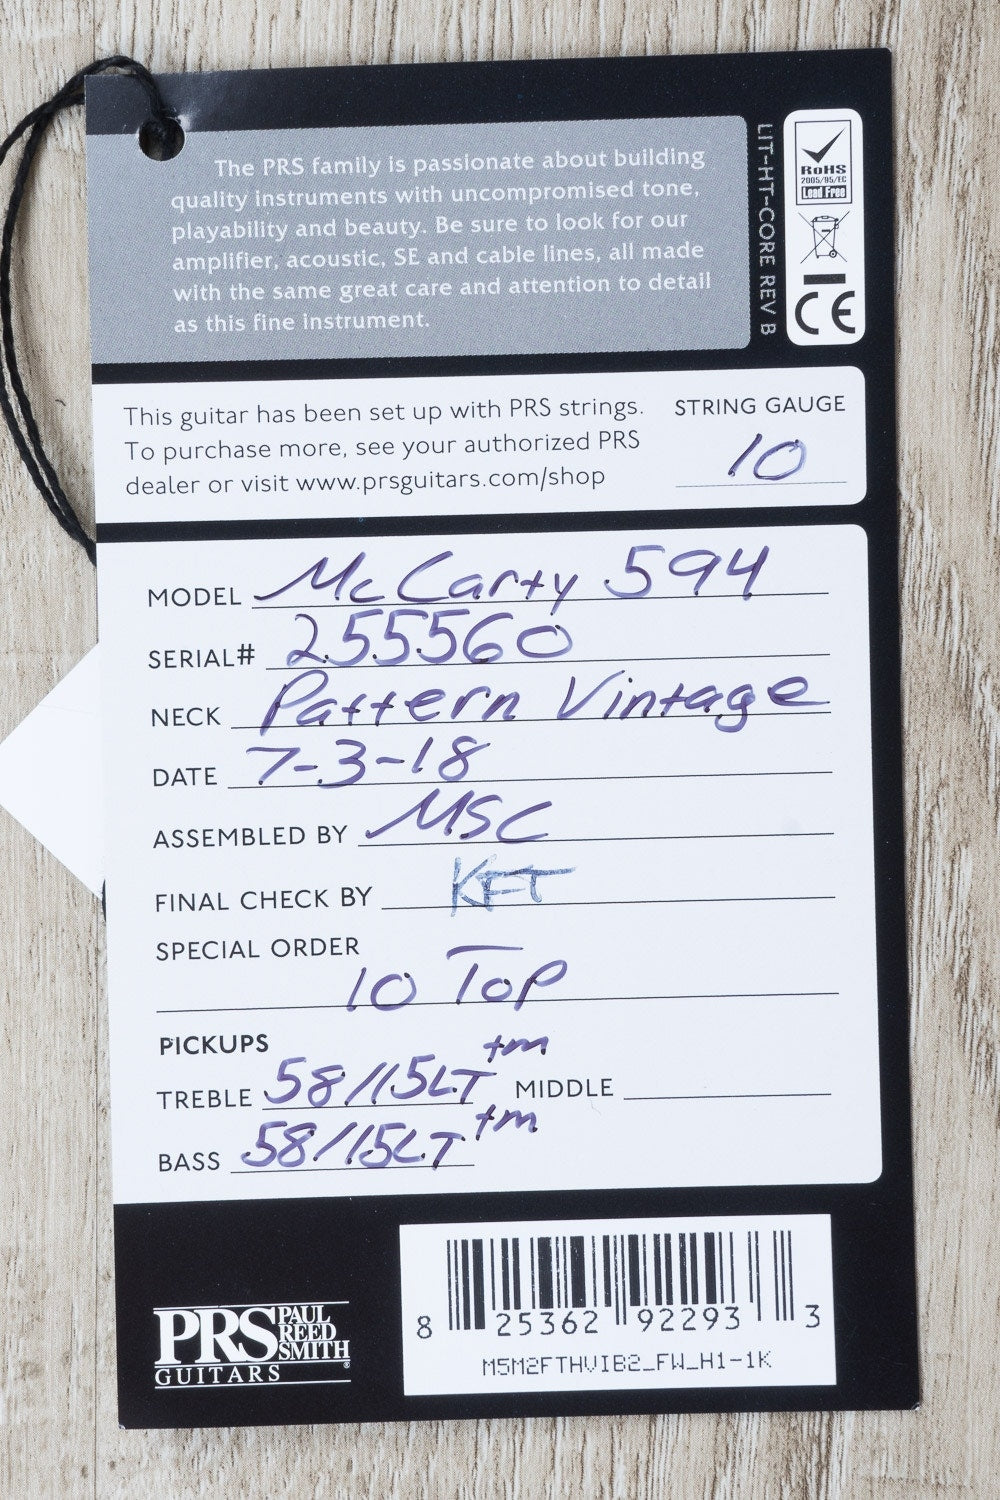 The PRS family is passionate about building
quality instruments with uncompromised tone,
playability and beauty. Be sure to look for our
amplifier, acoustic, SE and cable lines, all made
with the same great care and attention to detail
as this fine instrument.
LIT-HT-CORE REV B
RoHS
2005/95/EC
Lead Free
CE
This guitar has been set up with PRS strings.
To purchase more, see your authorized PRS
dealer or visit www.prsguitars.com/shop
STRING GAUGE
10
MODEL McCarty 594
SERIAL# 255560
NECK Pattern Vintage
DATE 7-3-18
ASSEMBLED BY MSC
FINAL CHECK BY KFT
SPECIAL ORDER
10 Top
PICKUPS
TREBLE 58/15LT tm MIDDLE
BASS 58/15LT tm
PRS PAUL REED SMITH
GUITARS
8 25362 92293 3
M5M2FTHVIB2_FW_H1-1K